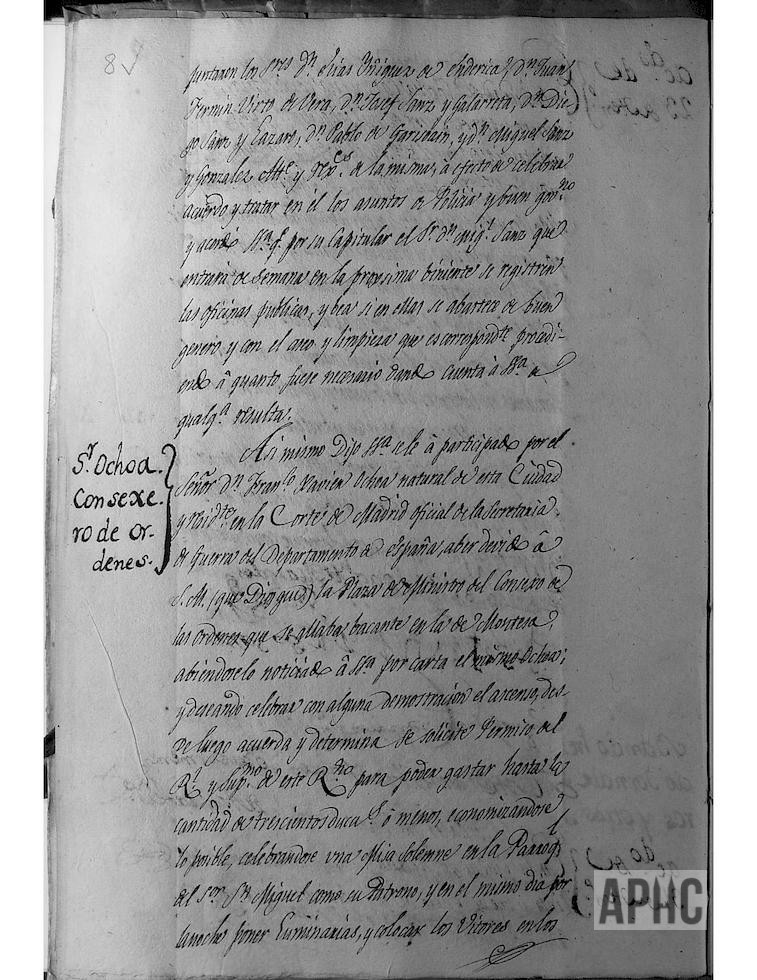 8
juntaron los S.res D.n Elias Yñiguez de Enderica, D.n Juan
Fermin Virto de Vera, D.n Josef Sanz y Galarreta, D.n Die-
go Sanz y Lazaro, D.n Pablo de Garibain, y d.n Miguel Sanz
y Gonzalez Alc.e y Rex.es de la misma, â efecto de celebrar
acuerdo y tratar en él los asuntos de Policia y buen gov.no
y acordó SS.a q.e por su Capitular el S.r d.n Mig.l Sanz que
entrara de Semana en la proxima biniente se registren
las oficinas publicas, y bea si en ellas se abastece de buen
genero y con el aseo y limpieza que es correspond.te procedi-
endo â quanto fuese necesario dando cuenta â SS.a de
qualq.a resulta.
Asi mismo Dijo SS.a se le â participado por el
Señor D.n Fran.co Xavier Ochoa natural de esta Ciudad
y resid.te en la Corte de Madrid oficial de la Secretaria
de Guerra del Departamento de España, aber devido â
S. M. (que Dios gue) la Plaza de Ministro del Consexo de
las Ordenes que se allaba bacante en la de Montesa,
abiendoselo noticiado â SS.a por carta el mismo Ochoa;
y deseando celebrar con alguna demostracion el ascenso, des-
de luego acuerda y determina se solicite Permiso del
R.l y Sup.mo de este R.no para poder gastar hasta la
cantidad de trescientos duca.s ó menos, economizandose
lo posible, celebrandose una Misa Solemne en la Parroq.l
del S.or S.n Miguel como su Patrono, y en el mismo dia por
la noche poner Luminarias, y colocar los Vitores en los
S.r Ochoa.
Consexe-
ro de Or-
denes.
APHC